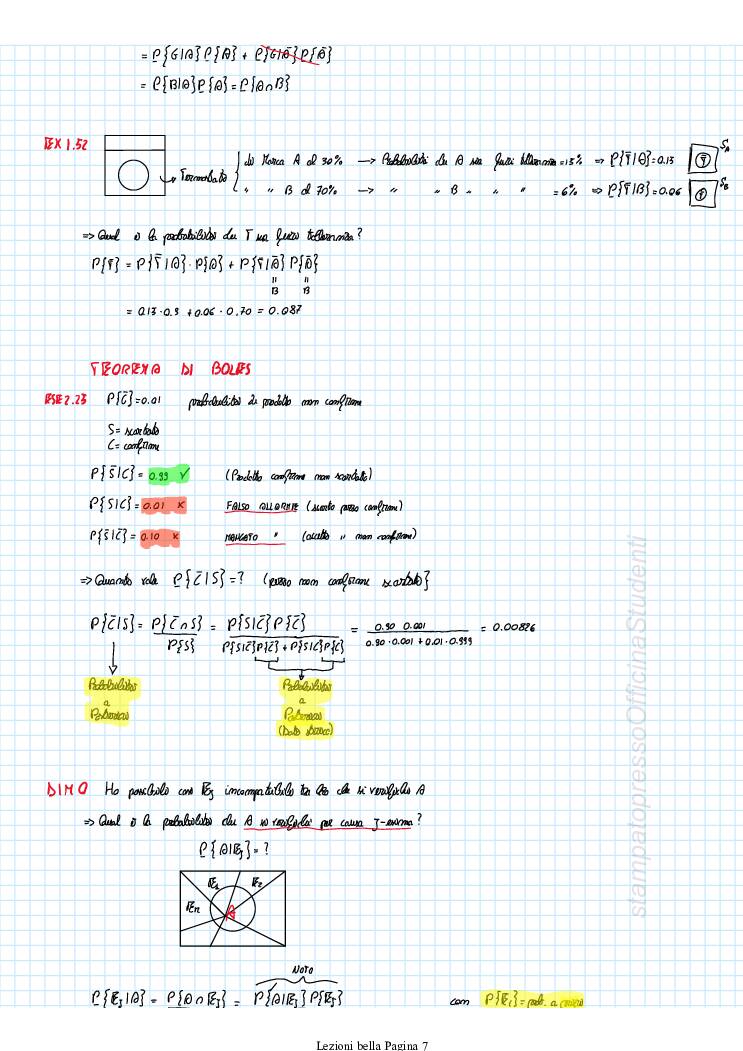 = P{G|A} P{A} + P{G|Ā} P{Ā}
= P{B|A} P{A} = P{A∩B}
EX 1.52
Termostato
di Marca A al 30% → Probabilità che A sia fuori tolleranza = 13% ⇒ P{T̄|A} = 0.13
" " B al 70% → " " B " " " = 6% ⇒ P{T̄|B} = 0.06
S_A
S_B
⇒ Qual è la probabilità che T sia fuori tolleranza?
P{T̄} = P{T̄|A} · P{A} + P{T̄|Ā} P{Ā}
" "
B B
= 0.13 · 0.3 + 0.06 · 0.70 = 0.087
TEOREMA DI BAYES
ESE 2.23 P{C̄} = 0.01 probabilità di prodotto non conforme
S = scartato
C = conforme
P{S̄|C} = 0.99 ✓ (Prodotto conforme non scartato)
P{S|C} = 0.01 × FALSO ALLARME (scarto pezzo conforme)
P{S̄|C̄} = 0.10 × MANCATO " (accetto " non conforme)
⇒ Quanto vale P{C̄|S} = ? (pezzo non conforme scartato}
P{C̄|S} = P{C̄∩S} / P{S} = P{S|C̄} P{C̄} / P{S|C̄} P{C̄} + P{S|C} P{C} = 0.90 0.001 / 0.90 · 0.001 + 0.01 · 0.999 = 0.00826
Probabilità
a
Posteriori
Probabilità
a
Posteriori
(Dato storico)
DIMO Ho possibili cause E_J incompatibili tra loro che si verifichi A
⇒ Qual è la probabilità che A si verifichi per causa J-esima?
P{A|E_J} = ?
E_1 E_2
E_n
A
NOTO
P{E_J|A} = P{A∩E_J} = P{A|E_J} P{E_J} con P{E_J} = prob. a priori
stampatopressoOfficinaStudenti
Lezioni bella Pagina 7